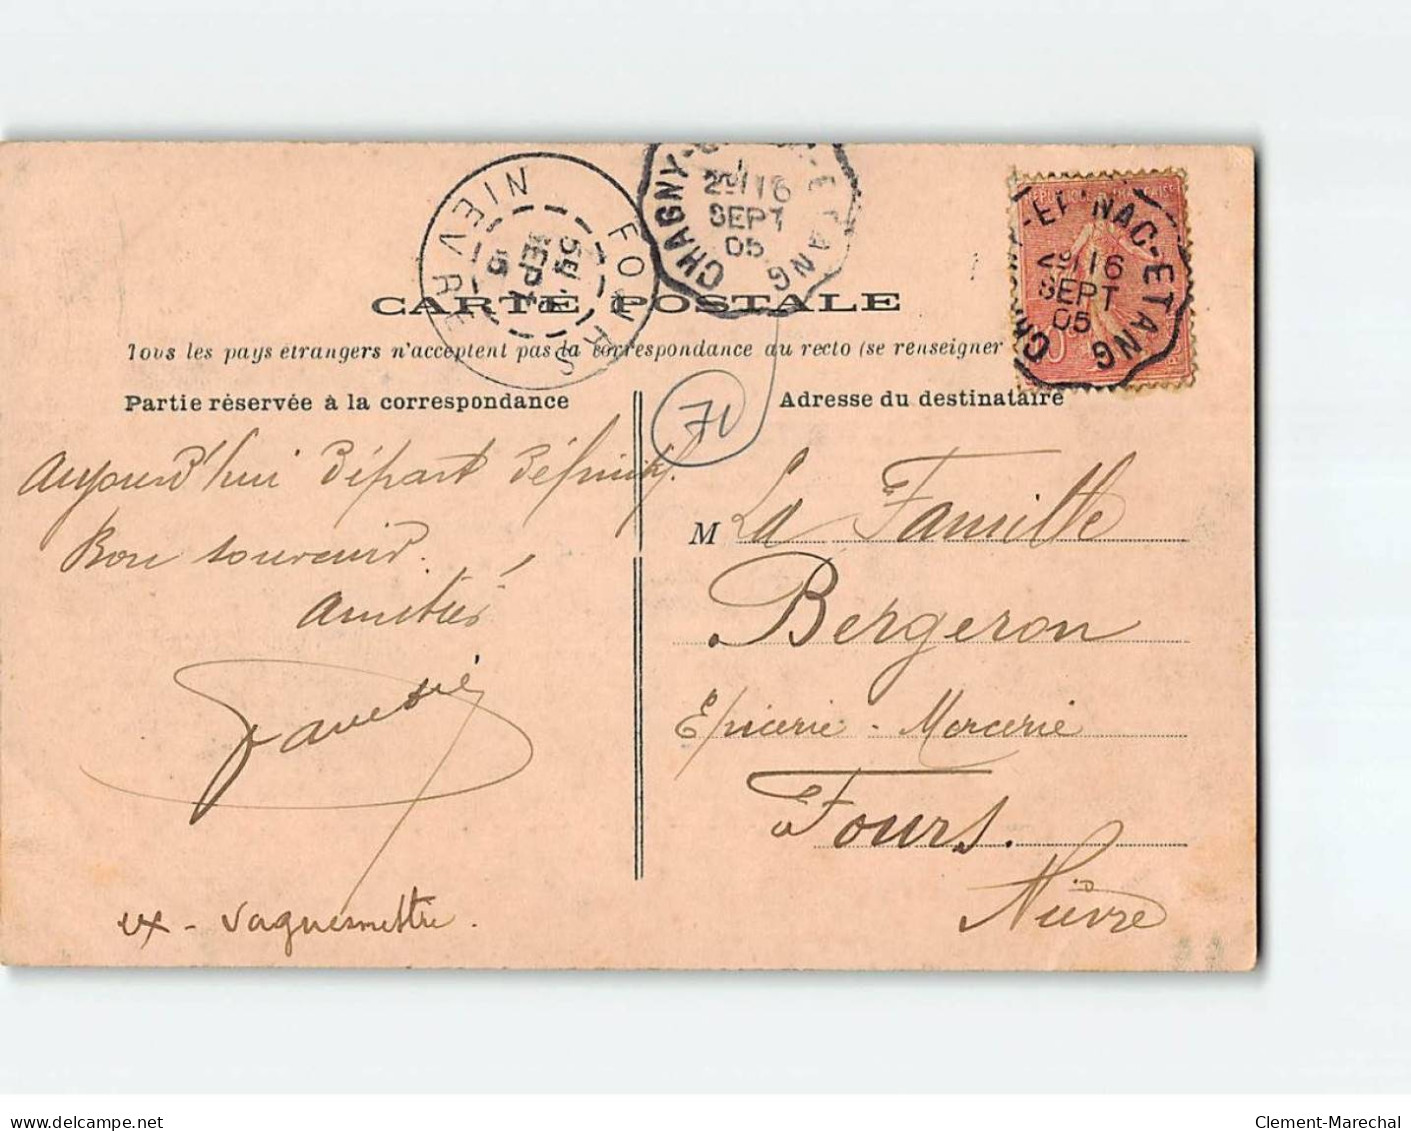 NIEVRE
FOURS
SEPT
CHAGNY-
-ETANG
2º/16
SEPT
05
REPUBLIQUE FRANCAISE
-EPINAC-ETANG
2º/16
SEPT
05
CARTE POSTALE
Tous les pays étrangers n'acceptent pas la correspondance au recto (se renseigner
Partie réservée à la correspondance
Adresse du destinataire
71
Aujourd'hui Départ Définitif.
Bon souvenir.
Amitiés
ex - Vaguemestre.
M La Famille
Bergeron
Epicerie - Mercerie
à Fours.
Nièvre
delcampe.net
Clement-Marechal